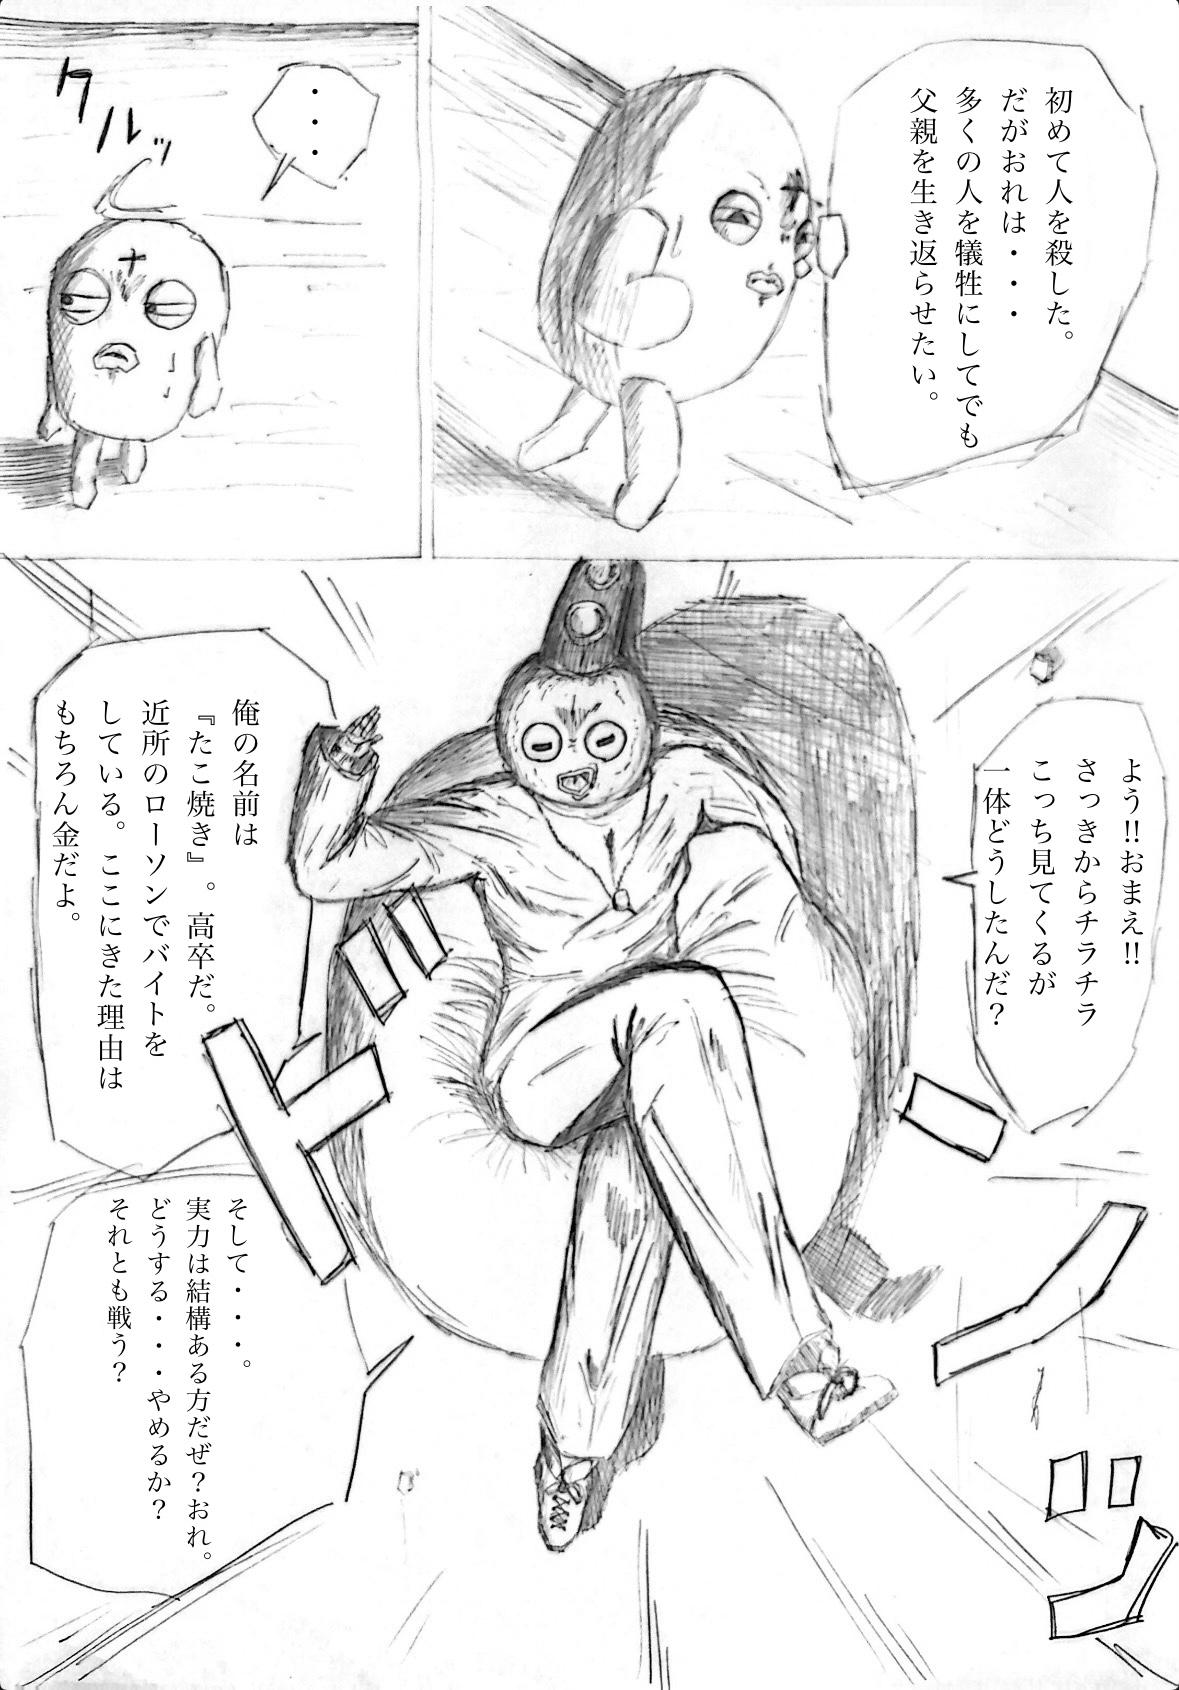 初めて人を殺した。
だがおれは・・・
多くの人を犠牲にしてでも
父親を生き返らせたい。
・・・
クルッ
よう!!おまえ!!
さっきからチラチラ
こっち見てくるが
一体どうしたんだ?
ドンッ
俺の名前は
『たこ焼き』。高卒だ。
近所のローソンでバイトを
している。ここにきた理由は
もちろん金だよ。
そして・・・。
実力は結構ある方だぜ?おれ。
どうする・・・やめるか?
それとも戦う?